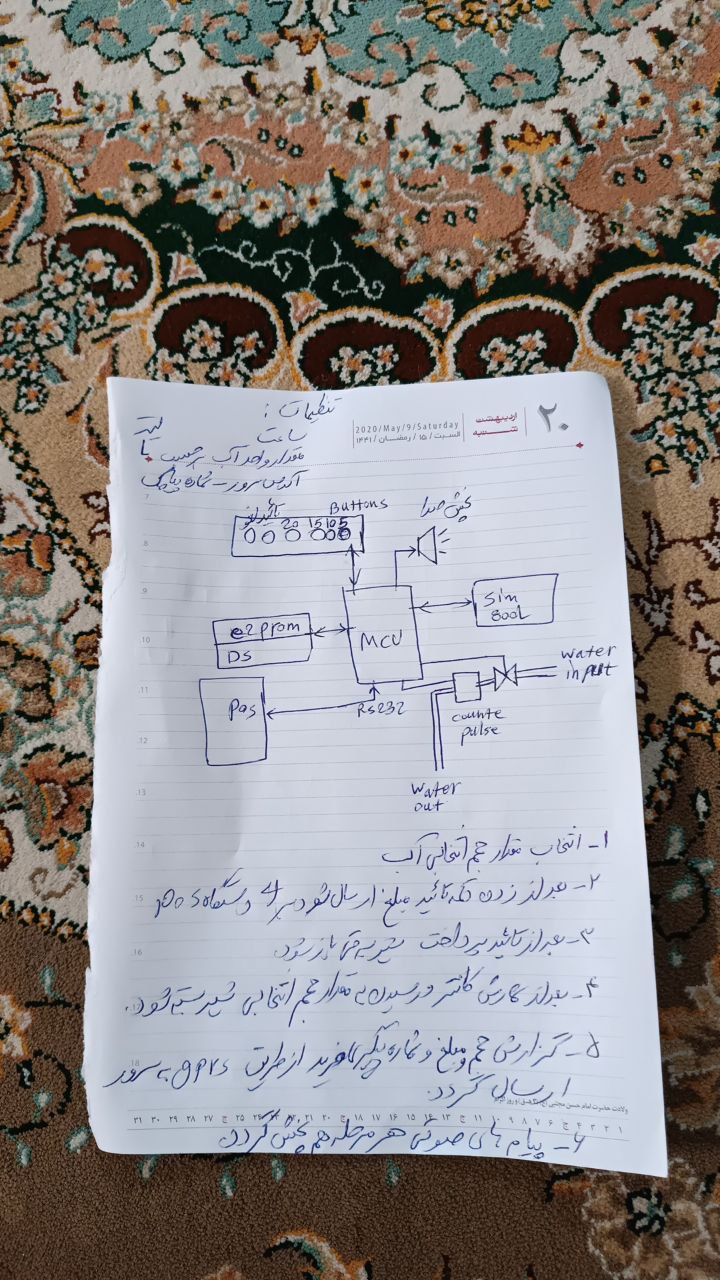 ۲۰
اردیبهشت
شنبه
2020/May/9/Saturday
السبت/ ۱۵ / رمضان/ ۱۴۴۱
تنظیمات :
ساعت
مقدار واحد آب بر حسب لیتر یا
آدرس سرور - شماره پیامک
Buttons
تائید لغو
20 15 10 5
پخش صدا
Sim
800L
e2prom
DS
MCU
Pos
RS232
Water
input
counte
pulse
Water
out
۱- انتخاب مقدار حجم انتخابی آب
۲- بعد از زدن دکمه تائید مبلغ ارسال شود برای دستگاه POS
۳- بعد از تائید پرداخت شیر برقی باز شود
۴- بعد از شمارش کانتر و رسیدن به مقدار حجم انتخابی شیر بسته شود.
۵- گزارش حجم و مبلغ و شماره پیگیری خرید از طریق gprs به سرور
ارسال گردد.
ولادت حضرت امام حسن مجتبی
۱ ۲ ۳ ۴ ج ۶ ۷ ۸ ۹ ۱۰ ۱۱ ج ۱۳ ۱۴ ۱۵ ۱۶ ۱۷ ۱۸ ج ۲۰ ۲۱ ۲۲ ۲۳ ۲۴ ۲۵ ج ۲۷ ۲۸ ۲۹ ۳۰ ۳۱
۶- پیام های صوتی هر مرحله هم پخش گردد.
7
.8
.9
.10
.11
.12
.13
.14
.15
.16